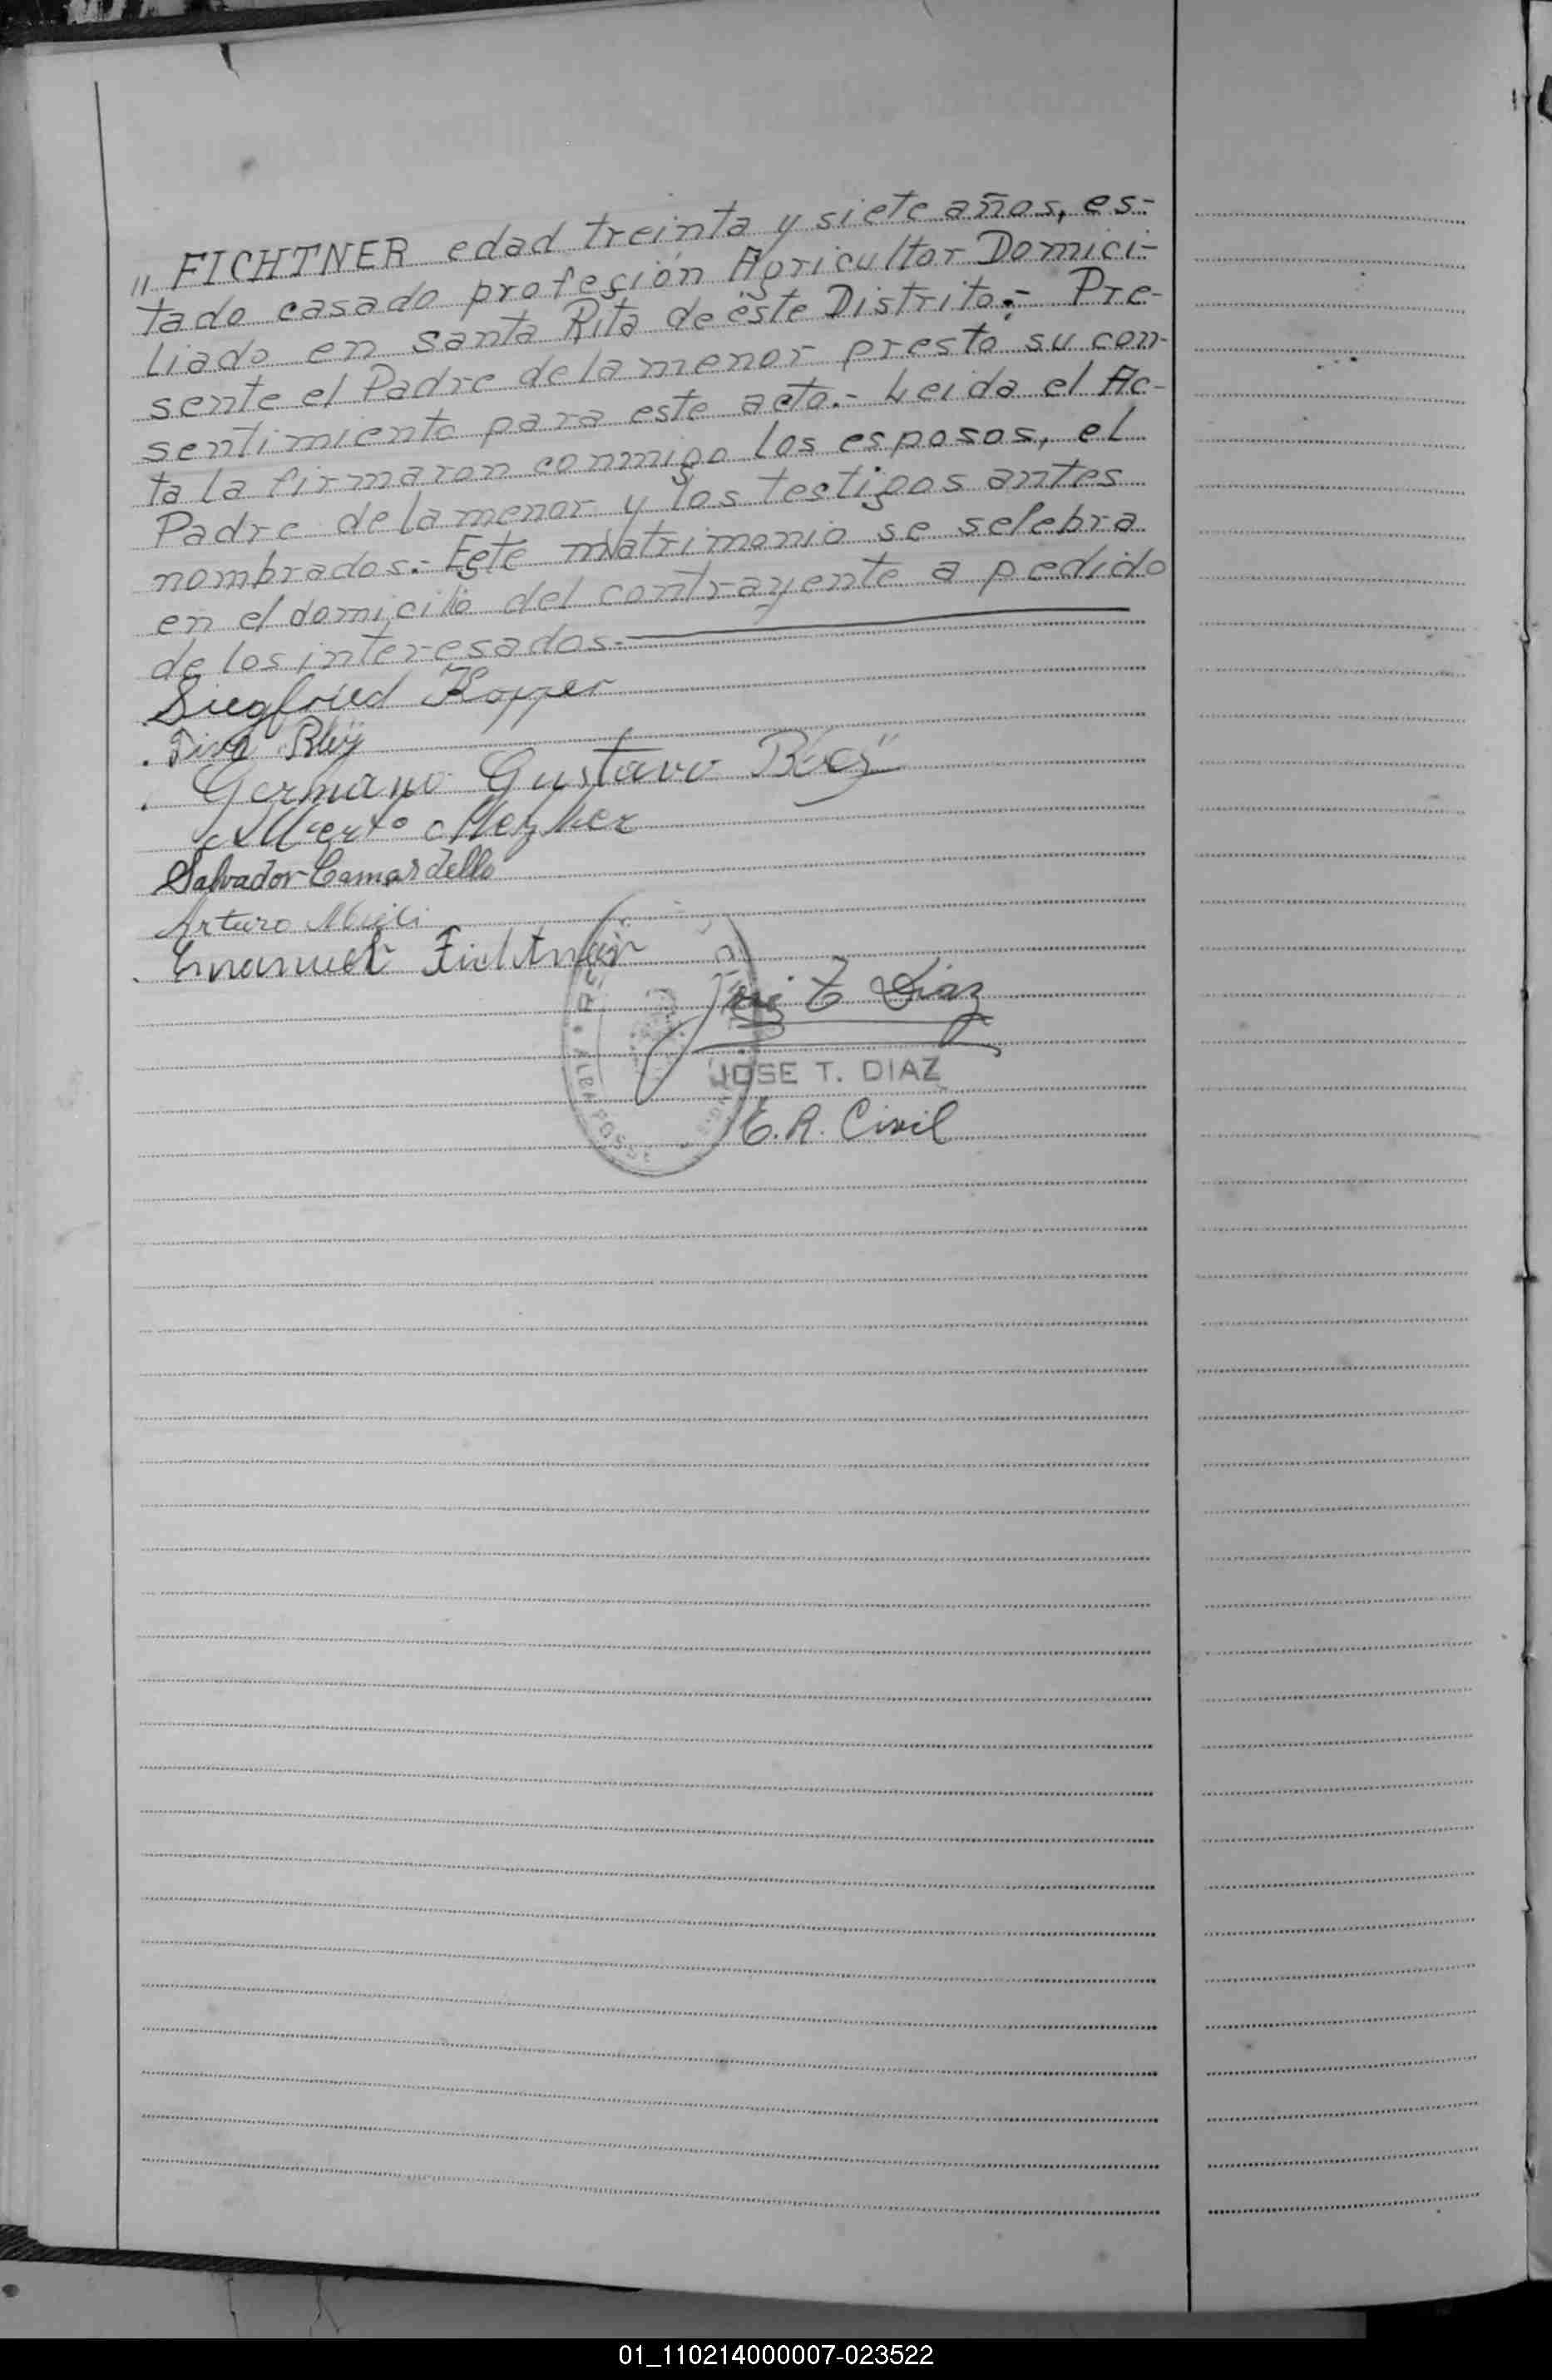 " FICHTNER edad treinta y siete años, es-
tado casado profesión Agricultor Domici-
liado en santa Rita de éste Distrito.- Pre-
sente el Padre de la menor presto su con-
sentimiento para este acto.- Leida el Ac-
ta la firmaron conmigo los esposos, el
Padre de la menor y los testigos antes
nombrados.- Este matrimonio se selebra
en el domicilio del contrayente a pedido
de los interesados.-
Siegfried Kopper
Germano Gustavo
Alberto
Salvador Camardello
Arturo
Emanuel Fichtner
José T Diaz
JOSE T. DIAZ
E. R. Civil
ALEM POSSE
01_110214000007-023522